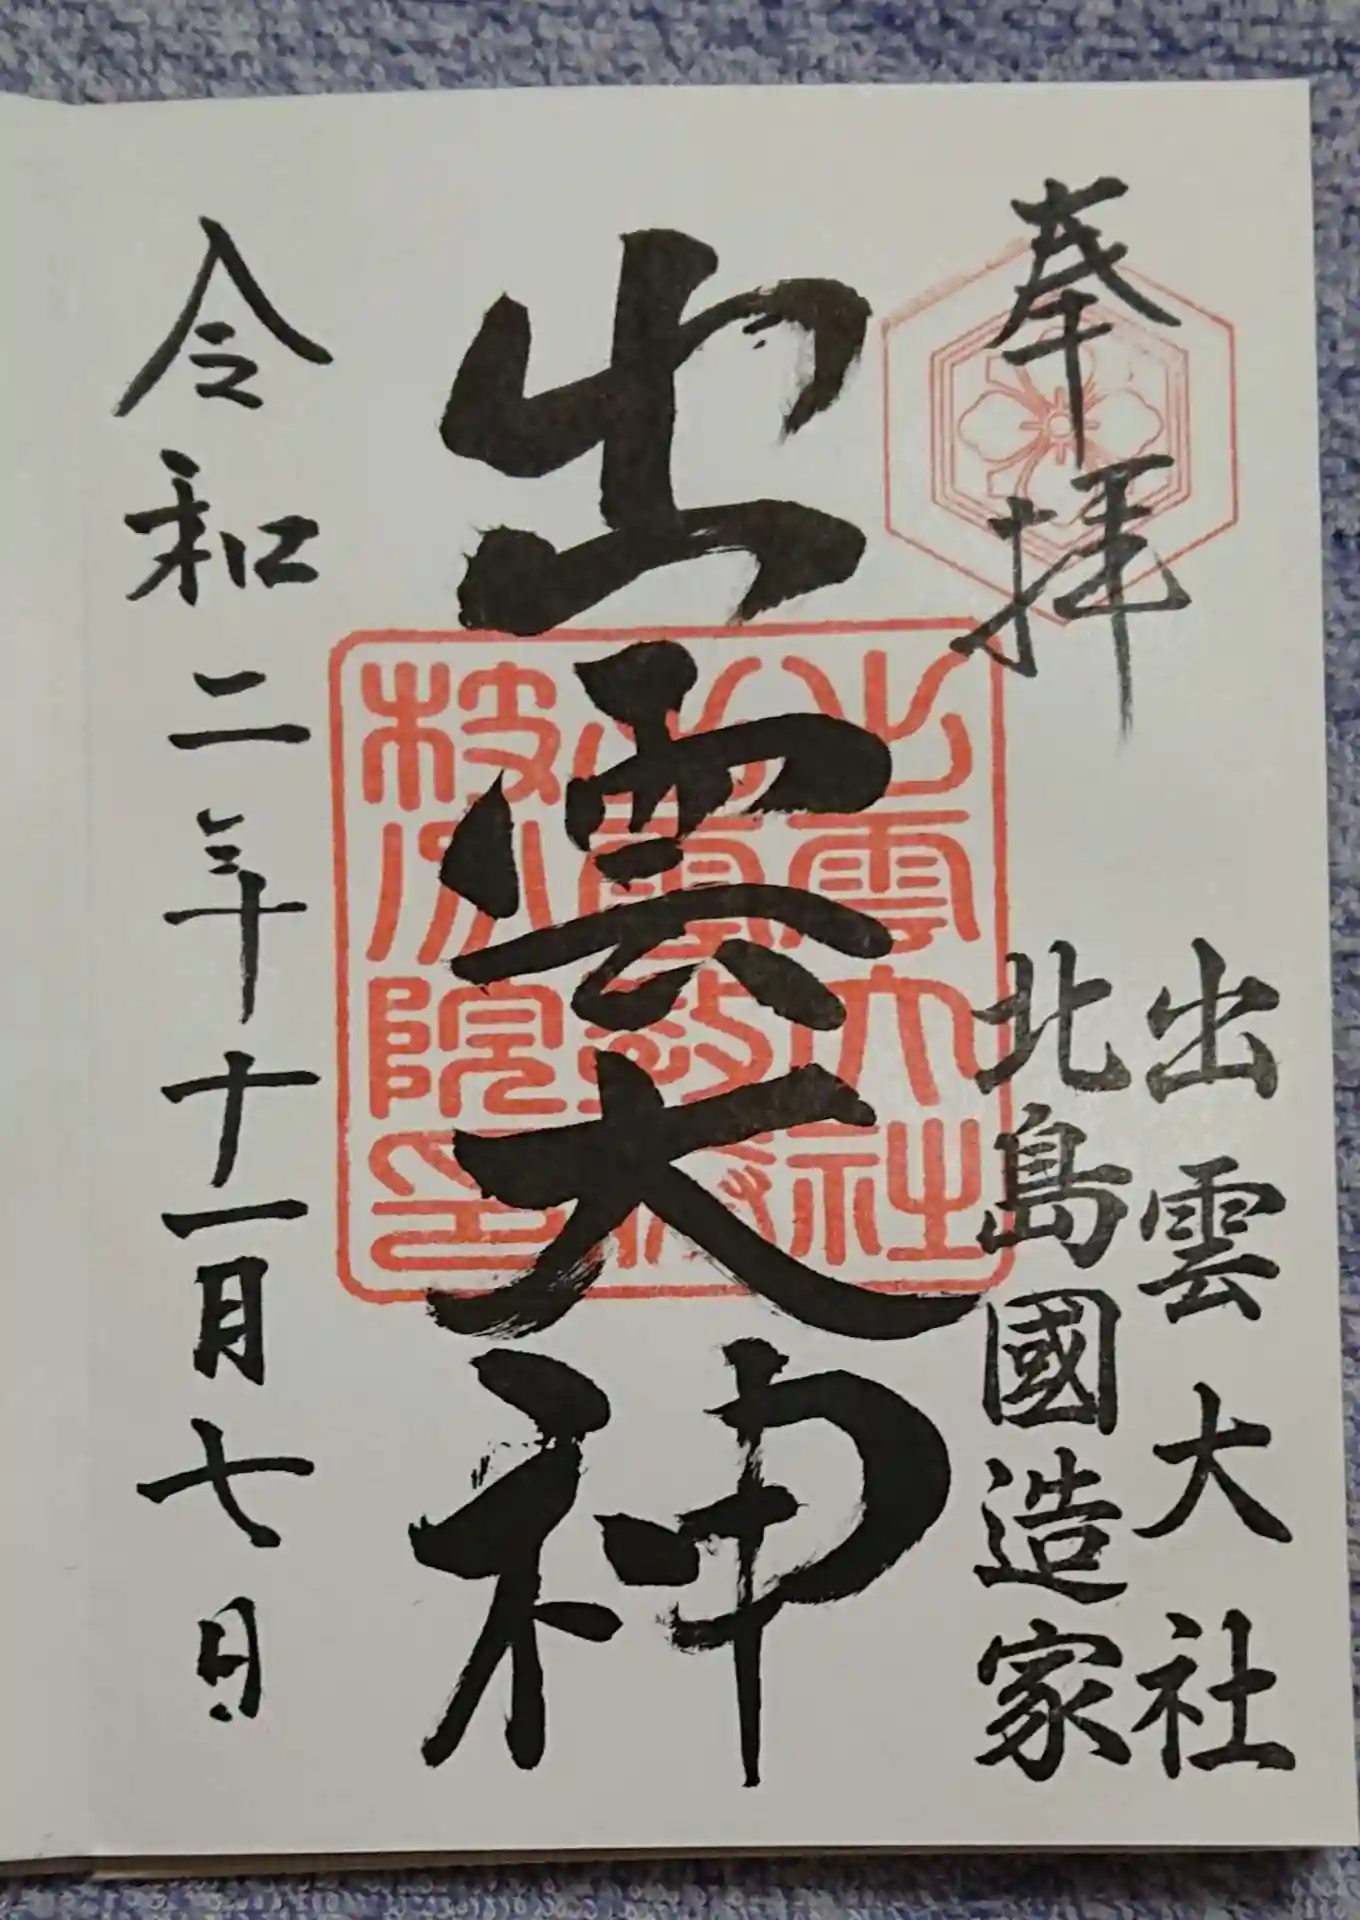 奉拝
出雲大社
北島國造家
出雲大神
出雲大社
令和二年十一月七日